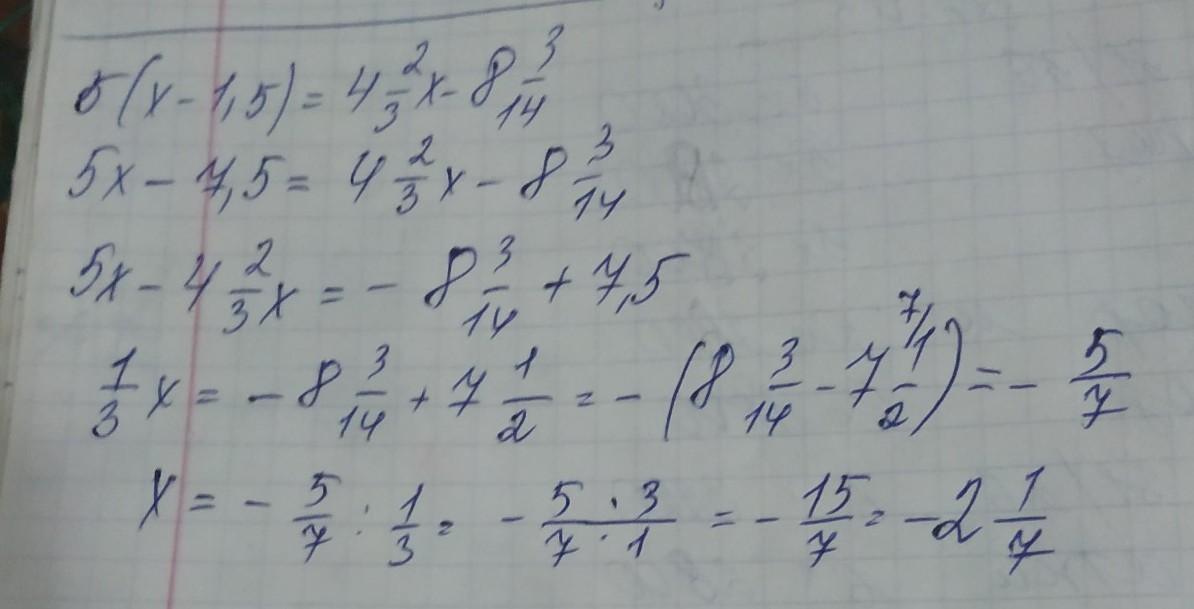 5(x - 1,5) = 4 2/3 x - 8 3/14
5x - 7,5 = 4 2/3 x - 8 3/14
5x - 4 2/3 x = - 8 3/14 + 7,5
1/3 x = - 8 3/14 + 7 1/2 = - (8 3/14 - 7 ⁷⁄1/2) = - 5/7
x = - 5/7 : 1/3 = - 5·3/7·1 = - 15/7 = -2 1/7